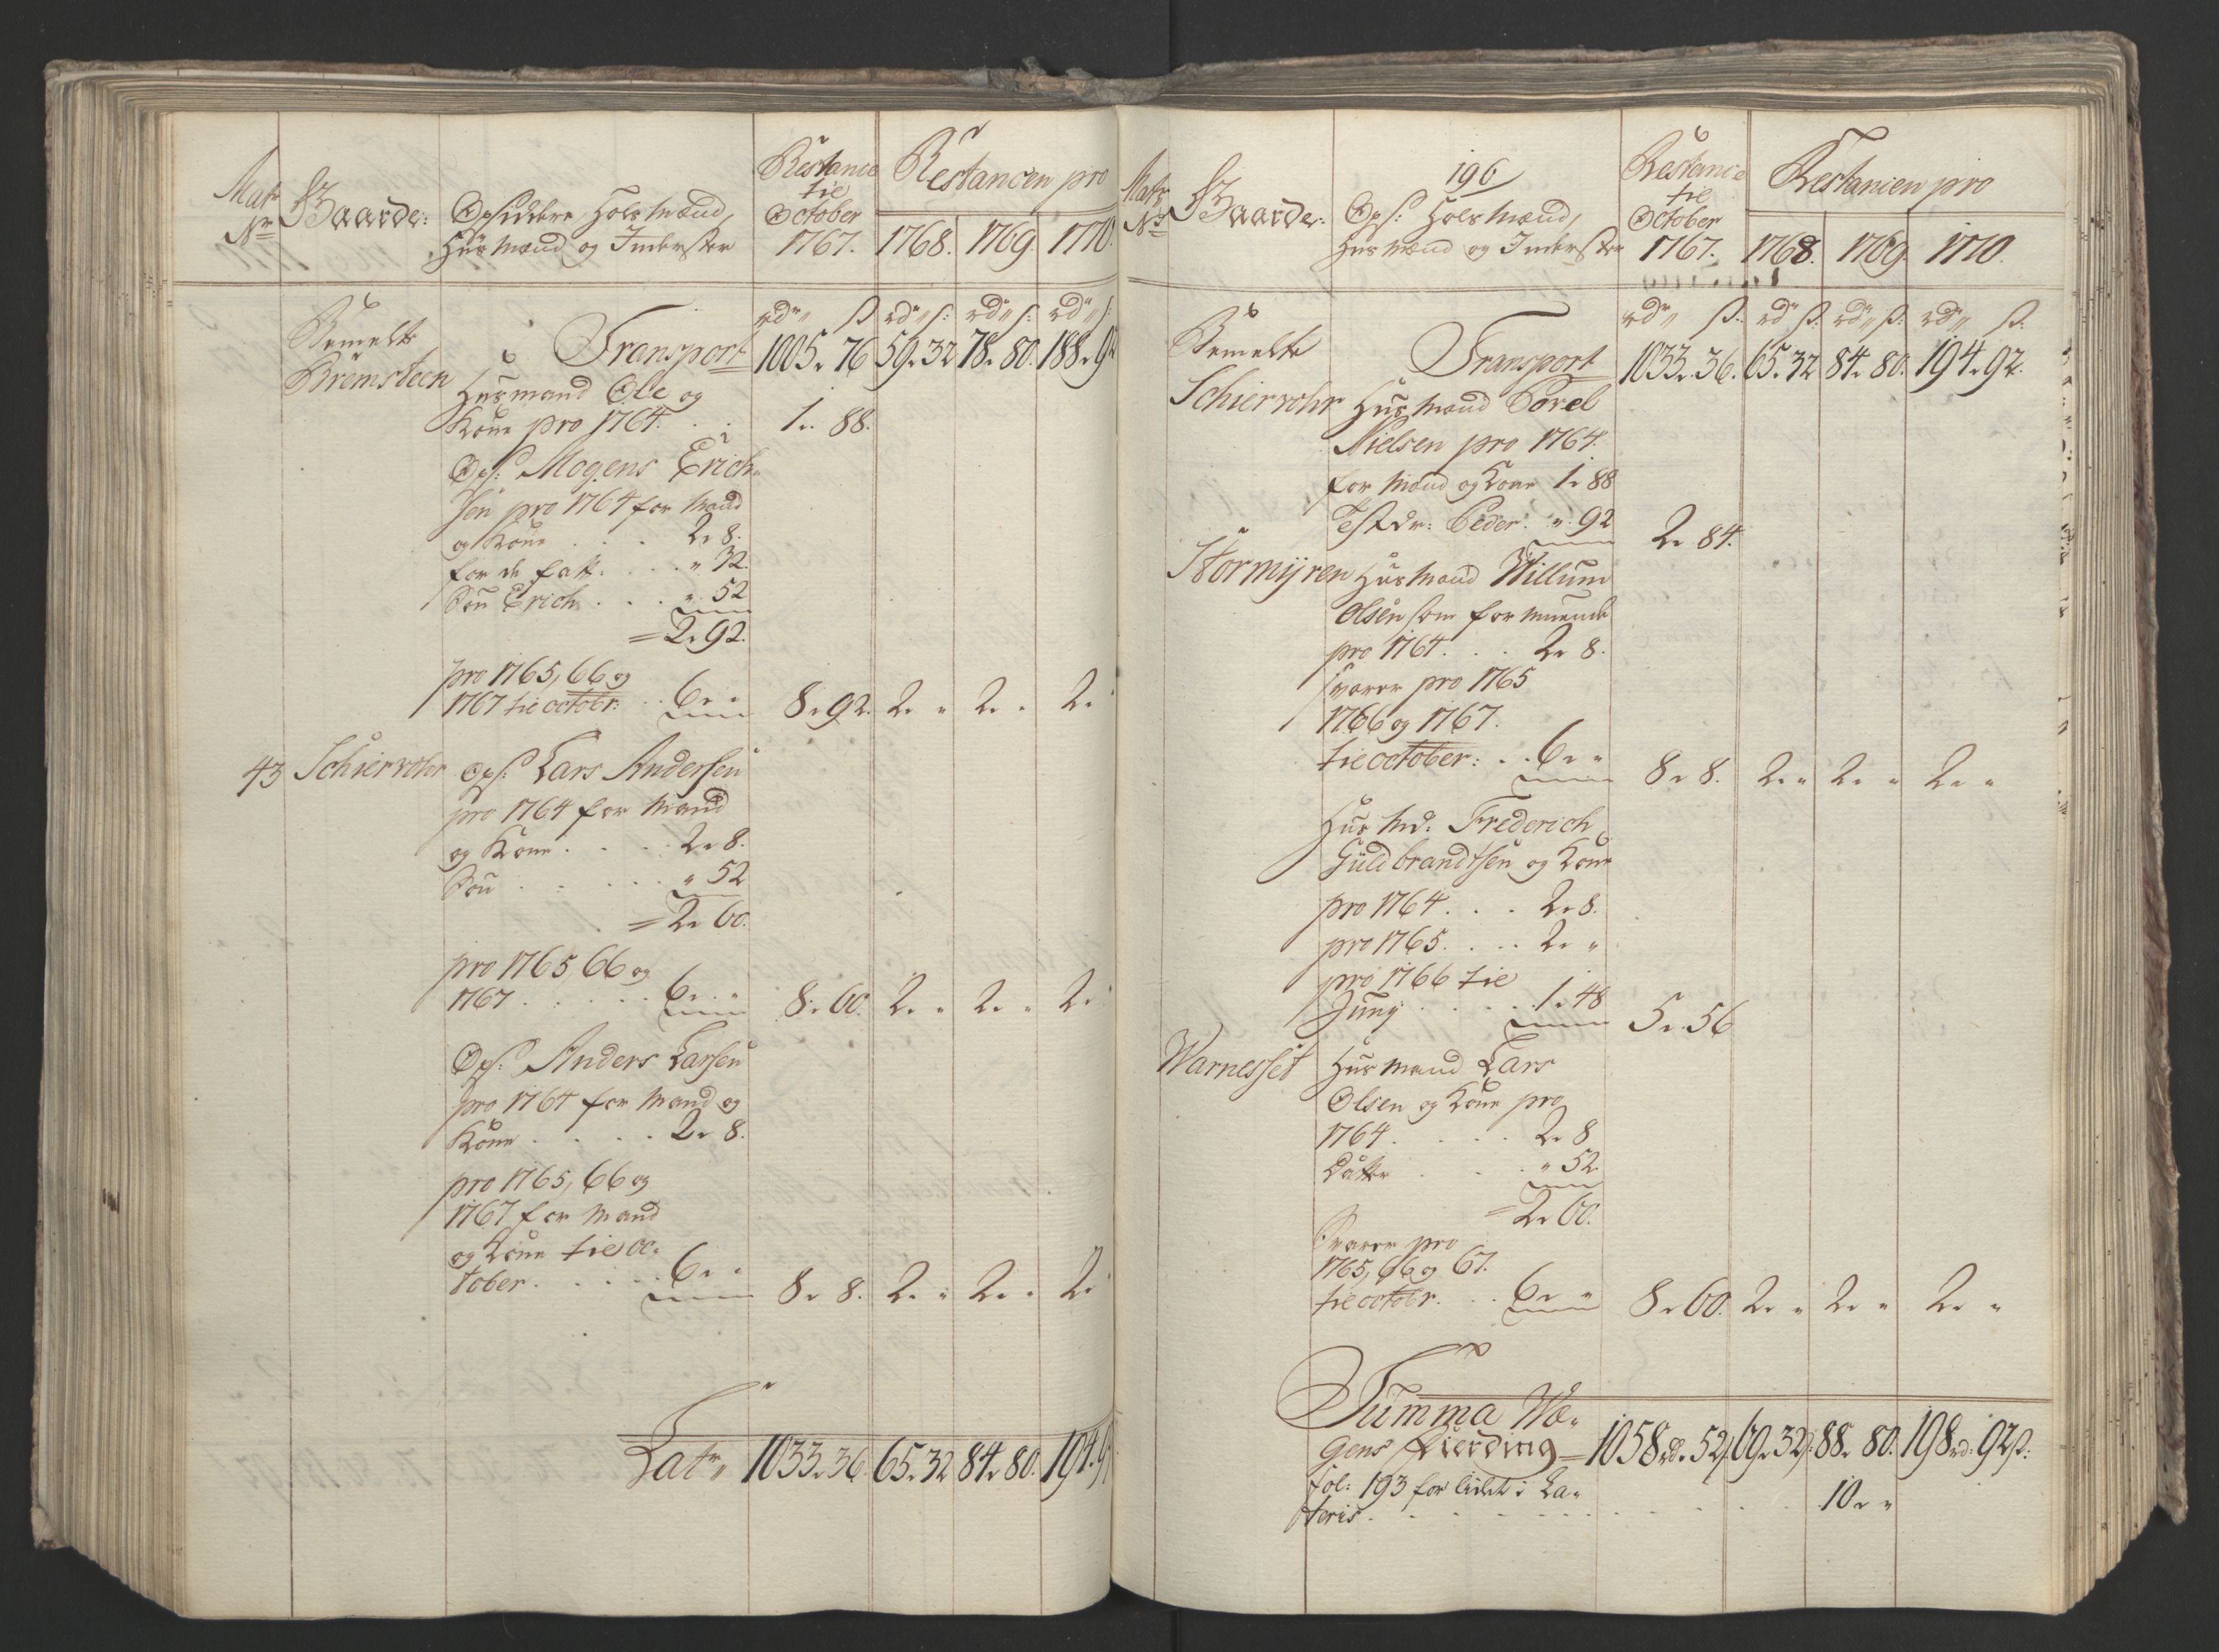 Matr Nr
Gaarde:
Opsiddere, Holsmænd,
Huusmænd og Inderster
Restance
til
October
1767.
Restancen pro
1768. 1769. 1770.
rdr ß rdr ß: rdr ß: rdr ß:
Bemelte
Bremsteen
Transport 1005. 76 59. 32 78. 80. 188. 92
Huusmand Ole og
Kone pro 1764. . . 1. 88.
Ops: Mogens Erich-
sen pro 1764 for Mand
og Kone . . . 2. 8.
for de fatt. . . . " 32.
Søn Erich . . . " 52
= 2. 92.
pro 1765, 66 og
1767 til octobr: . . 6. " 8. 92. 2. " 2. " 2. "
43 Schiervohr Ops: Lars Andersen
pro 1764 for Mand
og Kone . . . . 2. 8.
Søn . . . . . " 52
= 2. 60.
pro 1765, 66 og
1767 . . . . . 6. " 8. 60. 2. " 2. " 2. "
Ops: Anders Larsen
pro 1764 for Mand og
Kone . . . . 2. 8.
pro 1765, 66 og
1767 for Mand
og Kone til oc-
tober. . . . . 6. " 8. 8. 2. " 2. " 2. "
Latr. 1033. 36. 65. 32 84. 80. 194. 9
Matr Nr
Gaarde:
196
Ops: Holsmænd,
Huusmænd og Inderster
Restance
til
October
1767.
Restancen pro
1768. 1769 1770.
rdr ß: rdr ß: rdr ß: rdr ß:
Bemelte
Schiervohr
Transport 1033. 36. 65. 32 84. 80. 194. 92.
Huusmand Povel
Nielsen pro 1764.
for Mand og Kone 1. 88
Testdr: Peder. " 92 2. 84.
Stormÿren Huusmand Willum
Olsen som formuende
pro 1764. . . 2. 8.
svarer pro 1765
1766 og 1767.
til october: . . 6. " 8. 8. 2. " 2. " 2. "
Huusmd. Frederich
Guldbrandtsen og Kone
pro 1764. . . 2. 8.
pro 1765. . . . 2. "
pro 1766 til
Junÿ . . . . 1. 48 5. 56
Warnesset Huusmand Lars
Olsen og Kone pro
1764. . . . . 2. 8
Datter . . . " 52
= 2. 60.
Svarer pro
1765, 66 og 67.
til octobr. . . 6. " 8. 60. 2. " 2. " 2. "
Summa Wæ-
gens Fierding = 1058 rd. 52 69. 32 88. 80. 198 rd: 92 ß:
fol: 193 for lidet i La-
teris . . . . . . . . 10. "